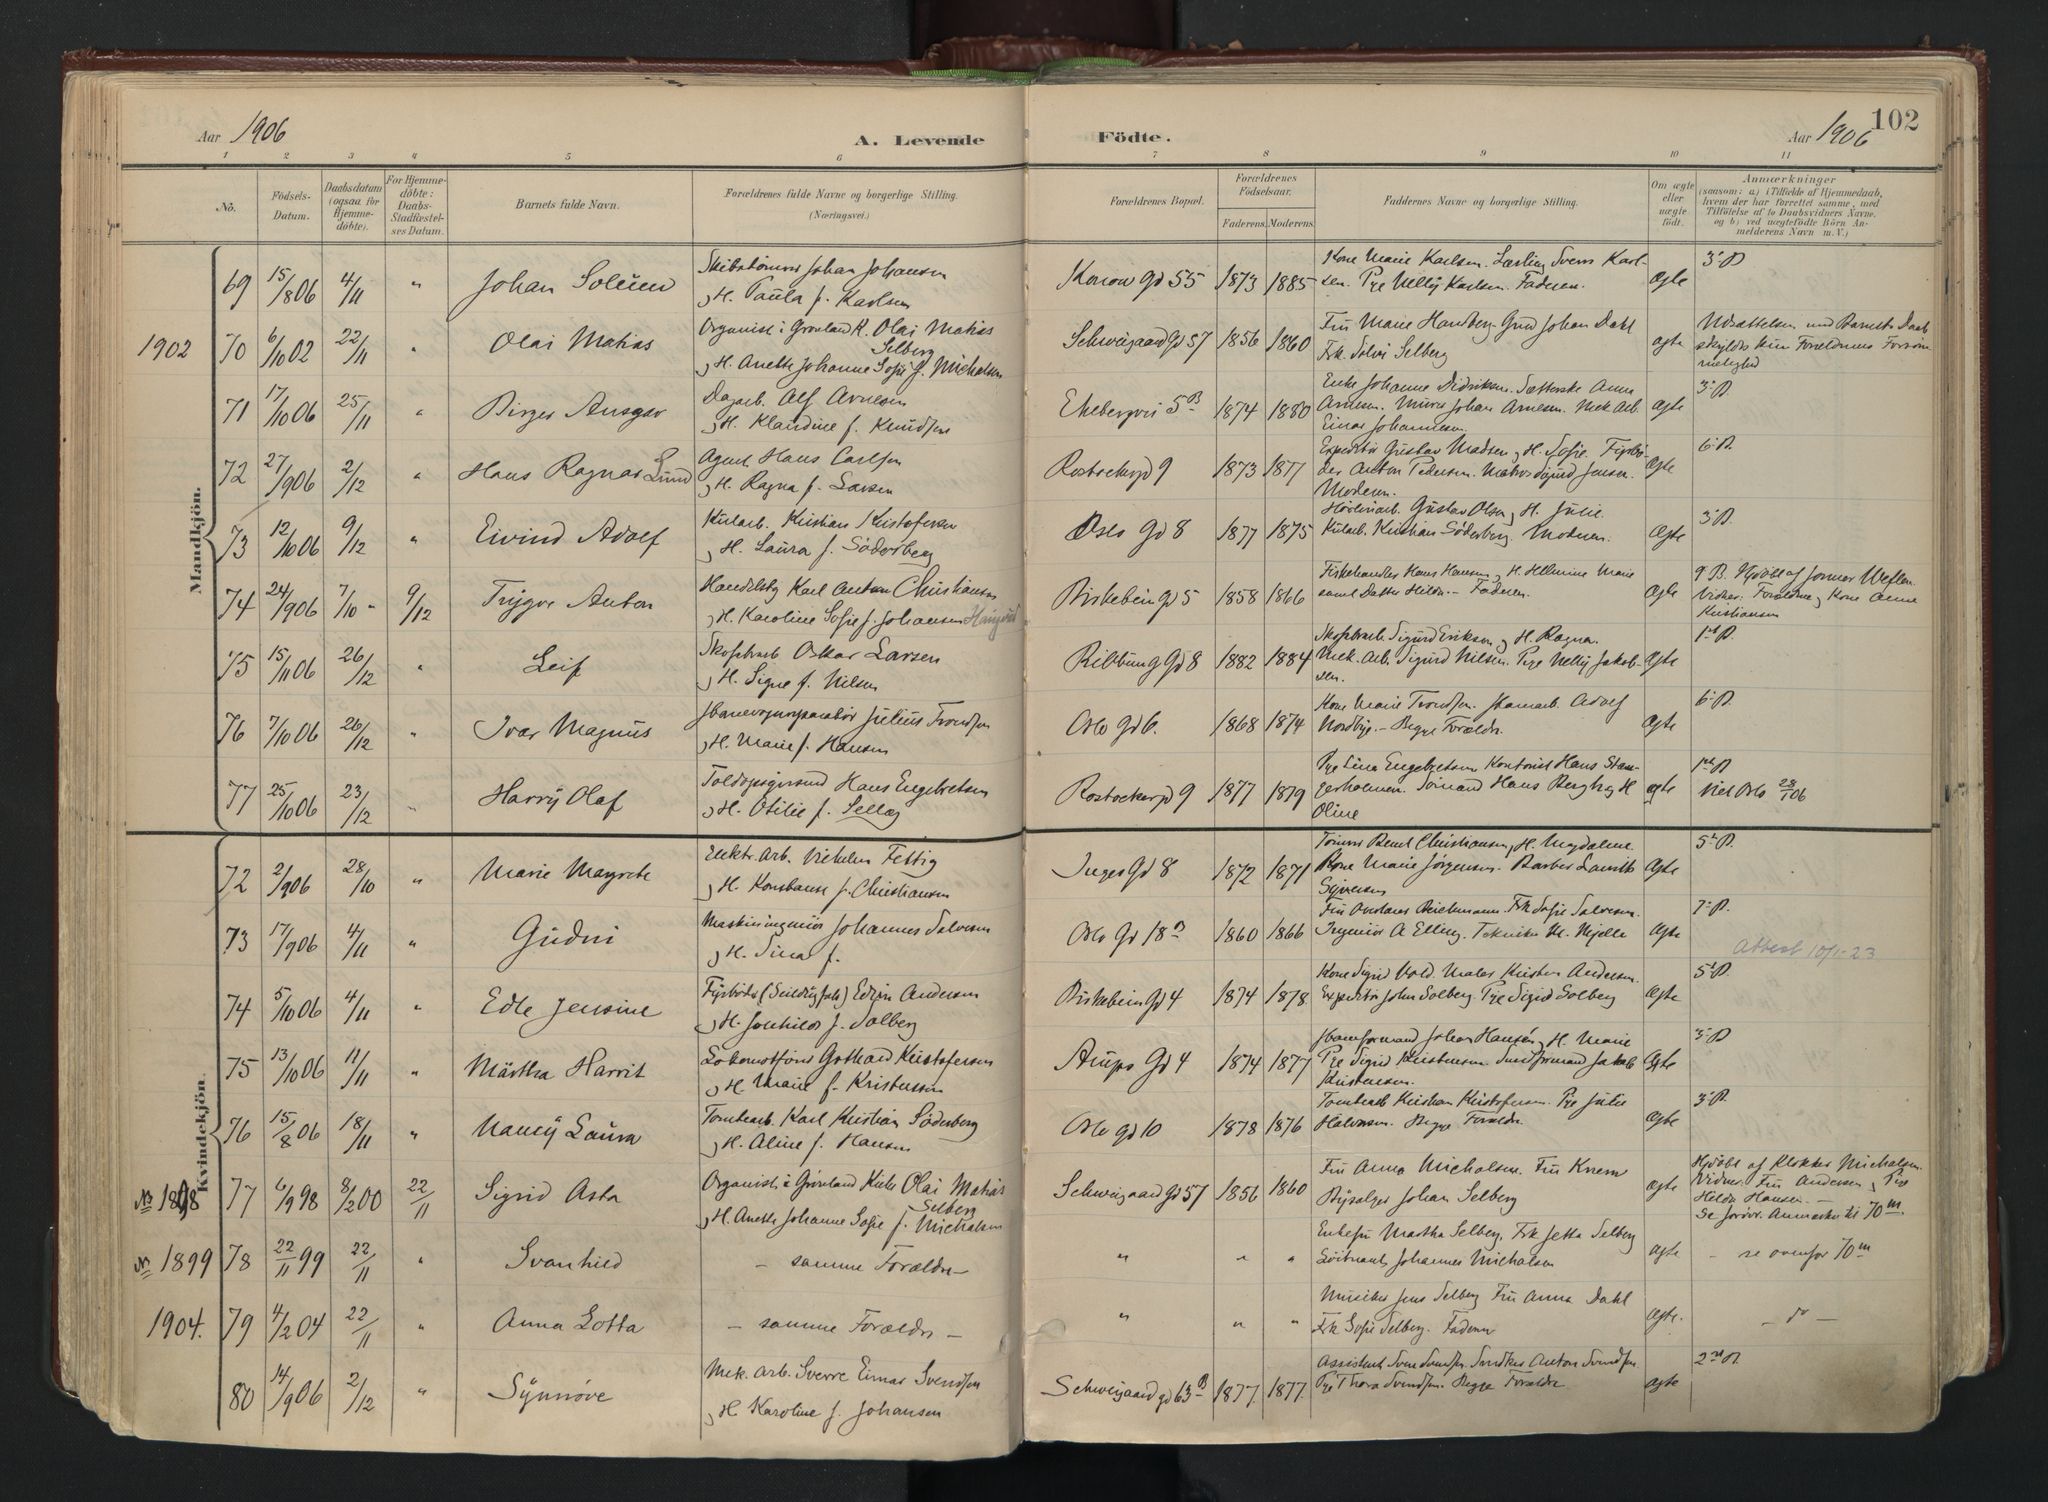 Aar 1906
A. Levende
Födte.
Aar 1906
102
1 2 3 4 5 6 7 8 9 10 11
No.
Födsels-
Datum.
Daabsdatum
(ogsaa for
Hjemme-
döbte).
For Hjemme-
döbte:
Daabs-
Stadfæstel-
ses Datum.
Barnets fulde Navn.
Forældrenes fulde Navne og borgerlige Stilling.
(Næringsvei.)
Forældrenes Bopæl.
Forældrenes
Födselsaar.
Faderens. Moderens.
Faddernes Navne og borgerlige Stilling.
Om ægte
eller
uægte
födt.
Anmærkninger
(saasom: a) i Tilfælde af Hjemmedaab,
hvem der har forrettet samme, med
Tilföielse af to Daabsvidners Navne.
og b) ved uægtefödte Börn An-
melderens Navn m. V.)
Mandkjön.
69 15/8 06 4/11 " Johan
Johan Johansen
H. Paula f. Karlsen
Gd 55 1873 1885
Kone Marie Karlsen. Lærling Sverre Karl-
sen. Pge Nelly Karlsen. Faderen.
ægte 3 B.
1902 70 6/10 02 22/11 " Olai Matias
Organist i Grönland K. Olai Matias
Selberg
H. Anette Johanne Sofie f. Michalsen
Schweigaard Gd 57 1856 1860
Fru Marie Johan Dahl
Frk Solvi Selberg
ægte
Udsættelsen med Barnets Daab
skyldes kun Forældrenes Forsöm-
melighed
71 17/10 06 25/11 " Birger Ansgar
Dagarb. Alf Arnesen
H. Klaudine f. Knudsen
Ekebergvei 5 B 1874 1880
Enke Johanne Didriksen. Anna
Arnesen. Murer Johan Arnesen. Mek Arb.
Einar Johannesen.
ægte 3 B.
72 27/9 06 2/12 " Hans Ragnar Lund
Agent Hans Carlsen
H. Ragna f. Larsen
Rostockergd 9 1873 1877
Expeditör Gustav Madsen og H. Sofie. Fyrbö-
der Anton Pedersen. Matros Sigurd Jensen.
Moderen.
ægte 6 B.
73 12/10 06 9/12 " Eivind Adolf
Kularb. Kristian Kristofersen
H. Laura f. Söderberg
Oslo Gd 8 1877 1875
Gustav Olsen og H. Julie.
Kularb. Kristian Söderberg. Moderen.
ægte 3 B.
74 24/9 06 7/10 - 9/12 Trygve Anton
Karl Anton Christiansen
H. Karoline Sofie f. Johansen
Birkebein gd 5 1858 1866
Fiskehandler Hans Hansen og H. Helmine Marie
samt Datter Helda - Faderen.
ægte
9 B. Hjdöbt af Jormor
Vidner: Forældrene og Kone Anne
Kristiansen
75 15/11 06 26/12 " Leif
Oskar Larsen
H. Signe f. Nilsen
Ribbung Gd 8 1882 1884
Sigurd Eriksen og H. Ragna.
Mek. Arb. Sigurd Nilsen. Pge Nelly Jakob-
sen.
ægte 1st B.
76 7/10 06 26/12 " Ivar Magnus
Julius Trondsen
H. Marie f. Hansen
Oslo Gd 6. 1868 1874
Kone Marie Trondsen. Adolf
Nordbye. - Begge Forældr.
ægte 6 B.
77 25/10 06 23/12 " Harry Olaf
Toldopsynsmand Hans Engebretsen
H. Otilie f. Selleg
Rostockergd 9 1877 1879
Pge Lina Engebretsen Kontorist Hans Stan-
gerholmen. Sömand Hans Bergh og H
Oline
ægte 1st B.
Viet Oslo 28/1 06
Kvindekjön.
72 2/9 06 28/10 " Marie Magrete
Elektr. Arb. Vilhelm Fettig
H. Konstanse f. Christiansen
Inges Gd 8 1872 1871
Bent Christiansen og H. Magdalene
Kone Marie Jörgensen. Barber Lauritz
Syversen
ægte 5 B.
73 17/9 06 4/11 " Gudni
Maskiningeniör Johannes Salvesen
H. Sina f.
Oslo Gd 18 B 1860 1866
Frk Sofie Salvesen.
Ingeniör A Elling. Tekniker
ægte 7 B.
Attest 10/1-23
74 5/10 06 4/11 " Edle Jensine
Fyrböder Edvin Andersen
H. f. Solberg
Birkebein Gd 4 1874 1878
Kone Sigrid Vold. Maler Kristen Andersen.
Expeditör John Solberg. Pge Sigrid Solberg
ægte 5 B.
75 13/10 06 11/11 " Märtha Harrit
Lokomotförer Gothard Kristofersen
H. Marie f. Kristensen
Arups Gd 4 1874 1877
Johan Hansen og H. Marie
Pge Sigrid Kristensen. Jakob
Kristensen.
ægte 3 B
76 15/8 06 18/11 " Nancy Laura
Tomtearb. Karl Kristian Söderberg
H. Aline f. Hansen
Oslo gd 10 1878 1876
Tomtearb Kristian Kristofersen. Pge Julie
Halvorsen. Begge Forældr.
ægte 3 B.
No 1898 77 6/9 98 8/2 00 22/11 Sigrid Asta
Organist i Grönland Kirke Olai Matias
Selberg
H. Anette Johanne Sofie f. Michalsen
Schweigaard Gd 57 1856 1860
Fru Anna Michalsen. Fru Knem
Byselger Johan Selberg
ægte
Hjdöbt af Klokker Michalsen.
Vidner: Fru Andersen og Pge
Helda Hansen. -
Se forövr. Anmerkn til 70 m.
No 1899 78 22/11 99 22/11 " Svanhild
- samme Forældre -
" " "
Enkefru Martha Selberg. Frk Jetta Selberg
Löitnant Johannes Michalsen
ægte - se ovenfor 70 m
1904. 79 4/2 04 22/11 " Anna Lotta
- samme Forældre -
" " "
Musiker Jens Selberg Fru Anna Dahl
Frk Sofie Selberg. Faderen
ægte. - do -
80 14/9 06 2/12 " Synnöve
Mek. Arb. Sverre Einar Svendsen
H. Karoline f. Johansen
Schweigaard gd 63 B 1877. 1877.
Assistent Sven Svendsen. Anton Svendsen
Pge Thora Svendsen. Begge Forældre
ægte 2nd B.